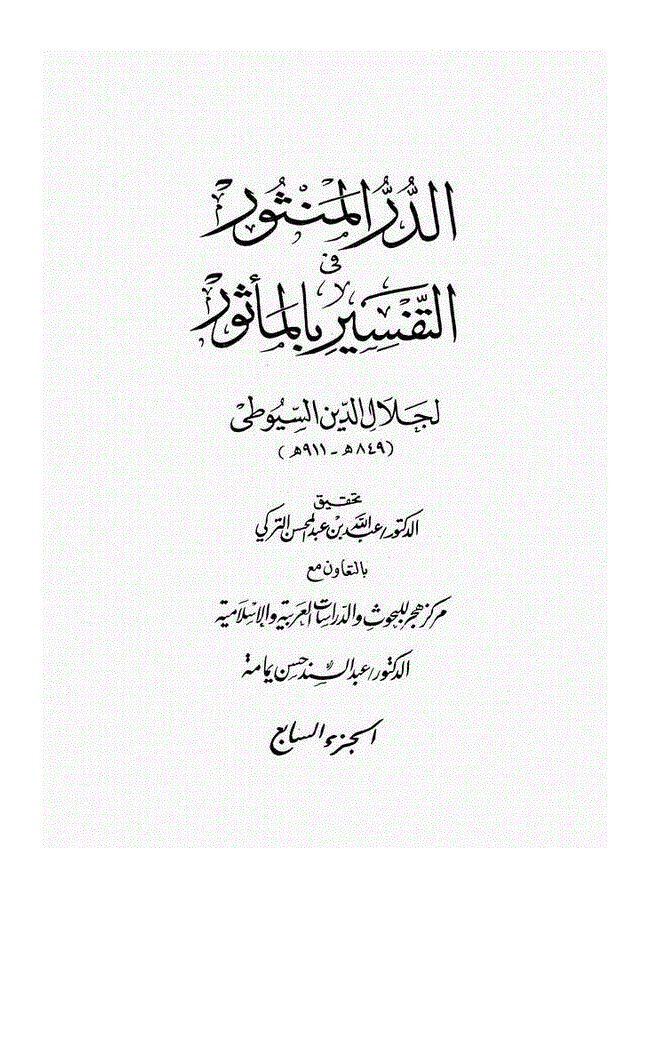 الدُّرُّ المَنْثُور
في
التَّفْسِيرِ بِالمَأثُور
لجَلَالِ الدِّين السِّيُوطى
(٨٤٩هـ - ٩١١هـ)
تحقيق
الدكتور/ عبد الله بن عبد المحسن التركي
بالتعاون مع
مركز هجر للبحوث والدراسات العربية والإسلامية
الدكتور/ عبد السند حسن يمامة
الجزء السابع